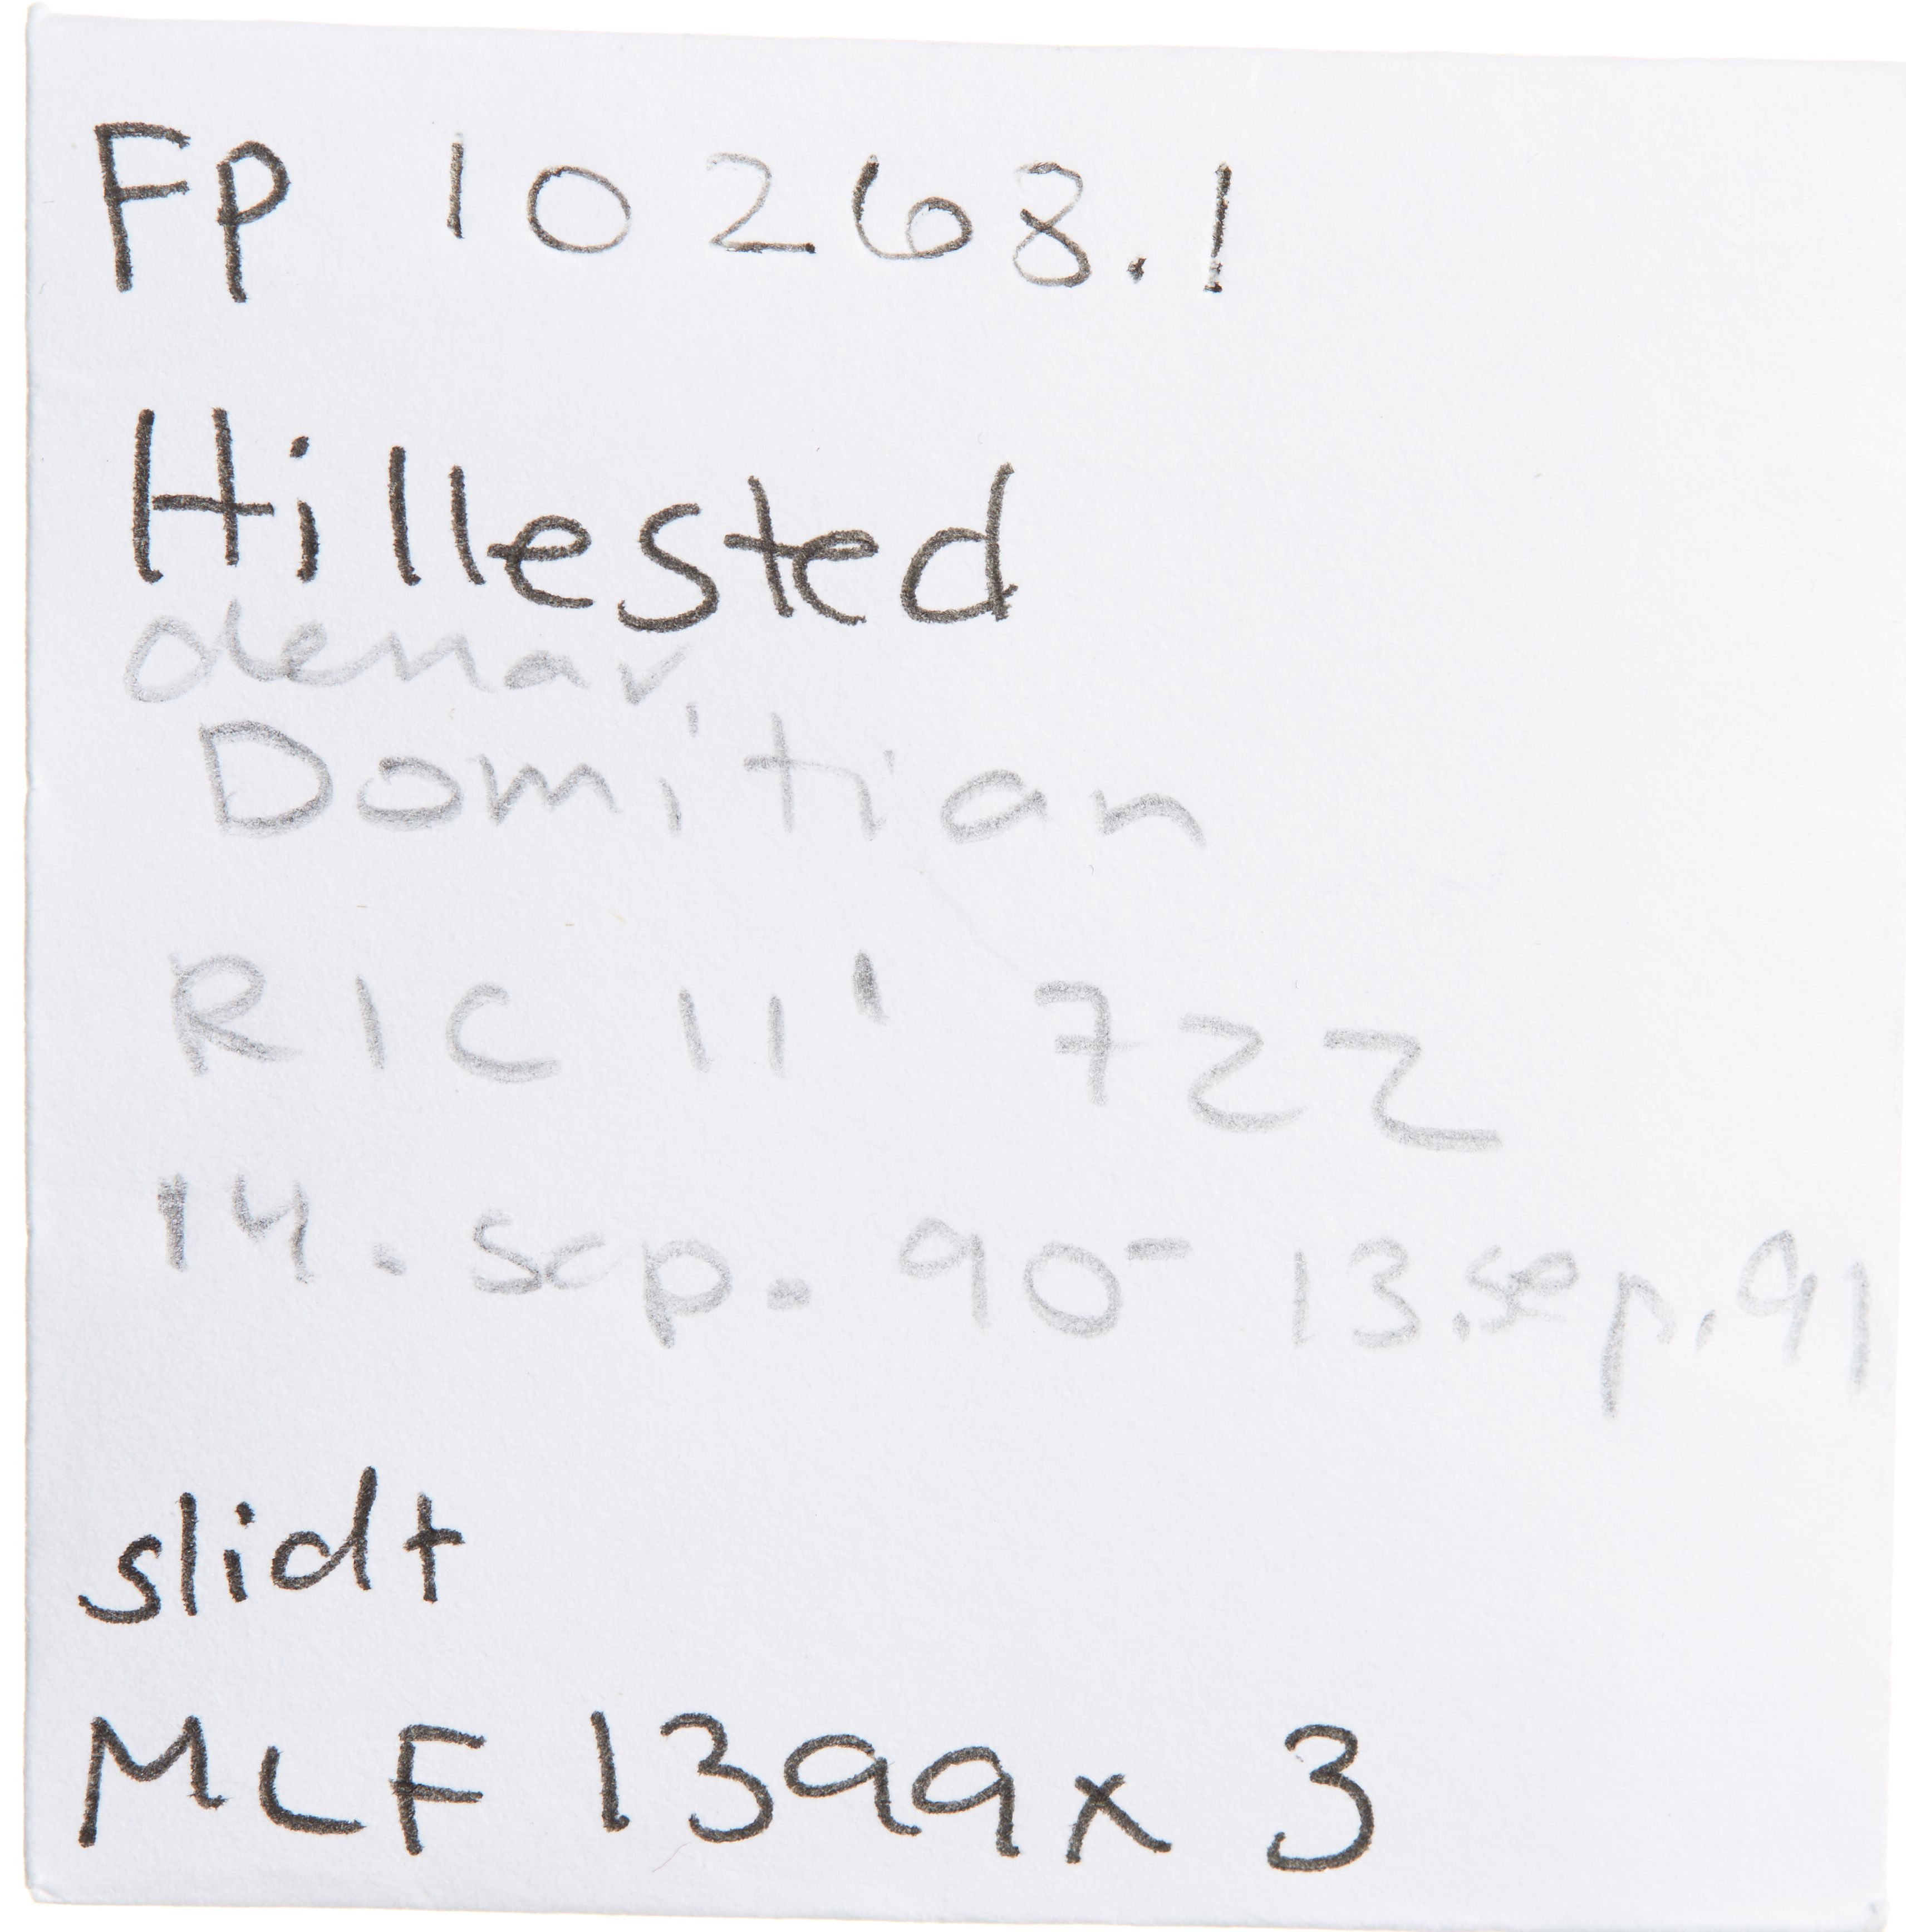 FP 10268.1
Hillested
denar
Domitian
RIC II¹ 722
14. sep. 90 - 13. sep. 91
slidt
MLF 1399x 3